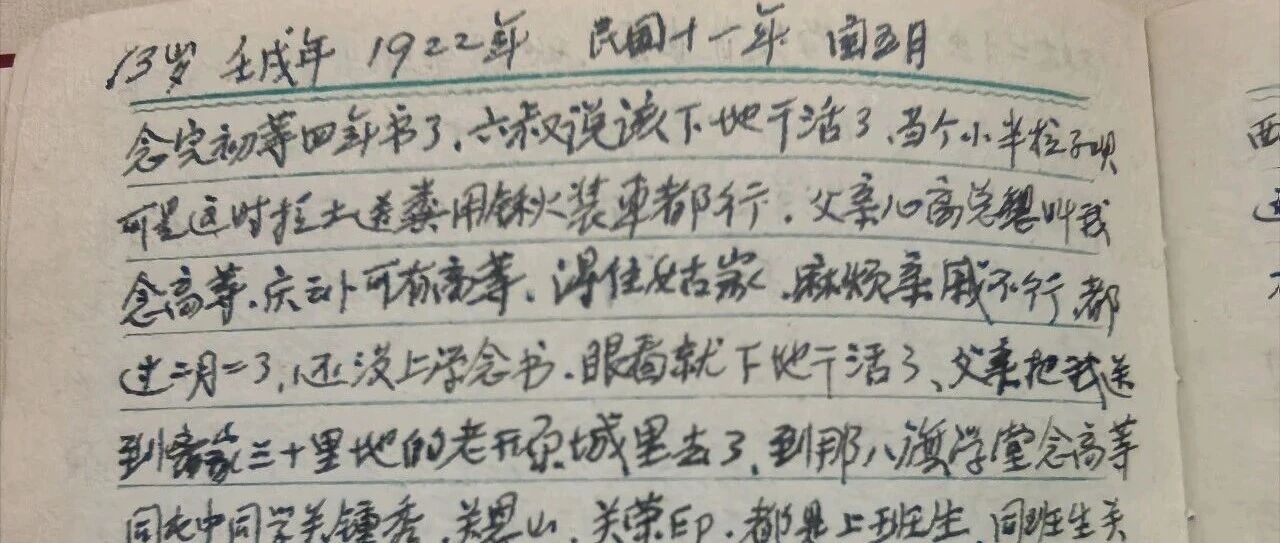 13岁 壬戌年 1922年 民国十一年 闰五月
念完初等四年书了，六叔说该下地干活了，当个小半拉子呗
可是这时拉土送粪用锹装車都行．父亲心高总想叫我
念高等．庆云卜可有高等，得住姑家．麻烦亲戚不行，都
过二月二了，还没上学念书．眼看就下地干活了、父亲把我送
到离家三十里地的老开原城里去了，到那八旗学堂念高等
同屯中同学关锺秀．关恩山．关荣印．都是上班生．同班生关
西